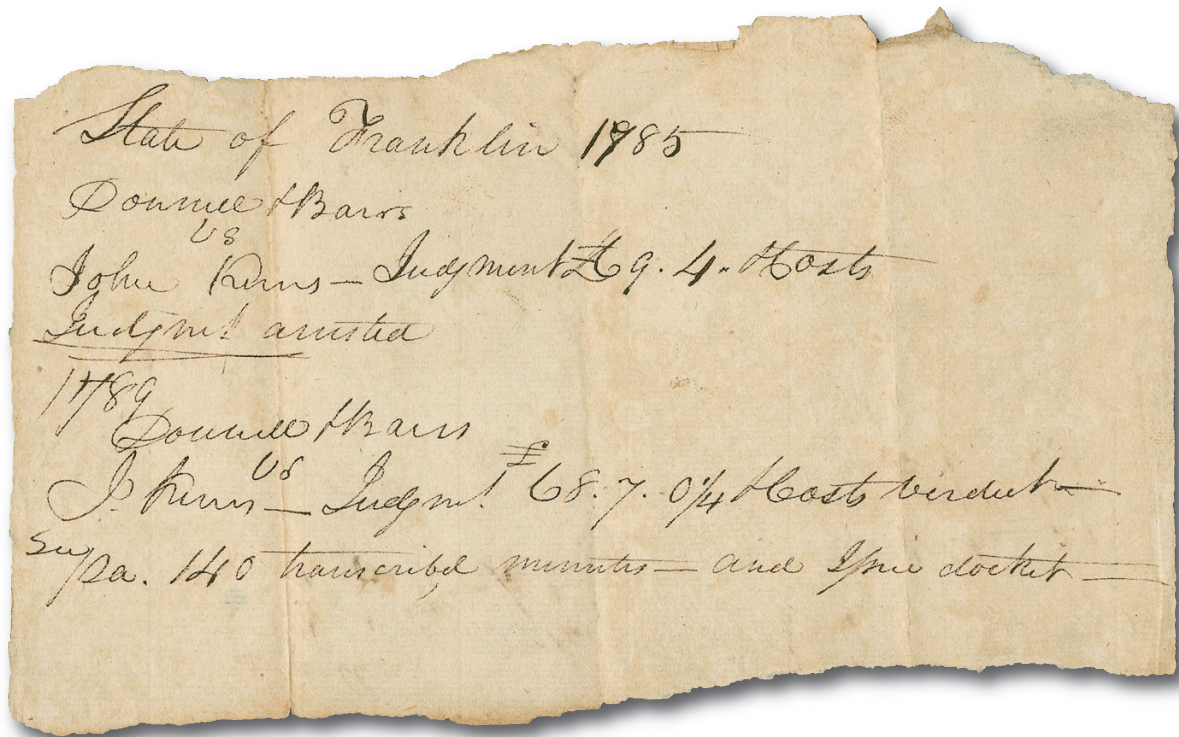 State of Franklin 1785
Donnell & Barrs
vs
John Kerns — Judgment £69. 4. & Costs
Judgmt. arrested
1789
Donnell & Barrs
vs
J. Kerns — Judgmt. £68. 7. 0¼ & Costs verdict —
See pa. 140 transcribd minutes — and docket —